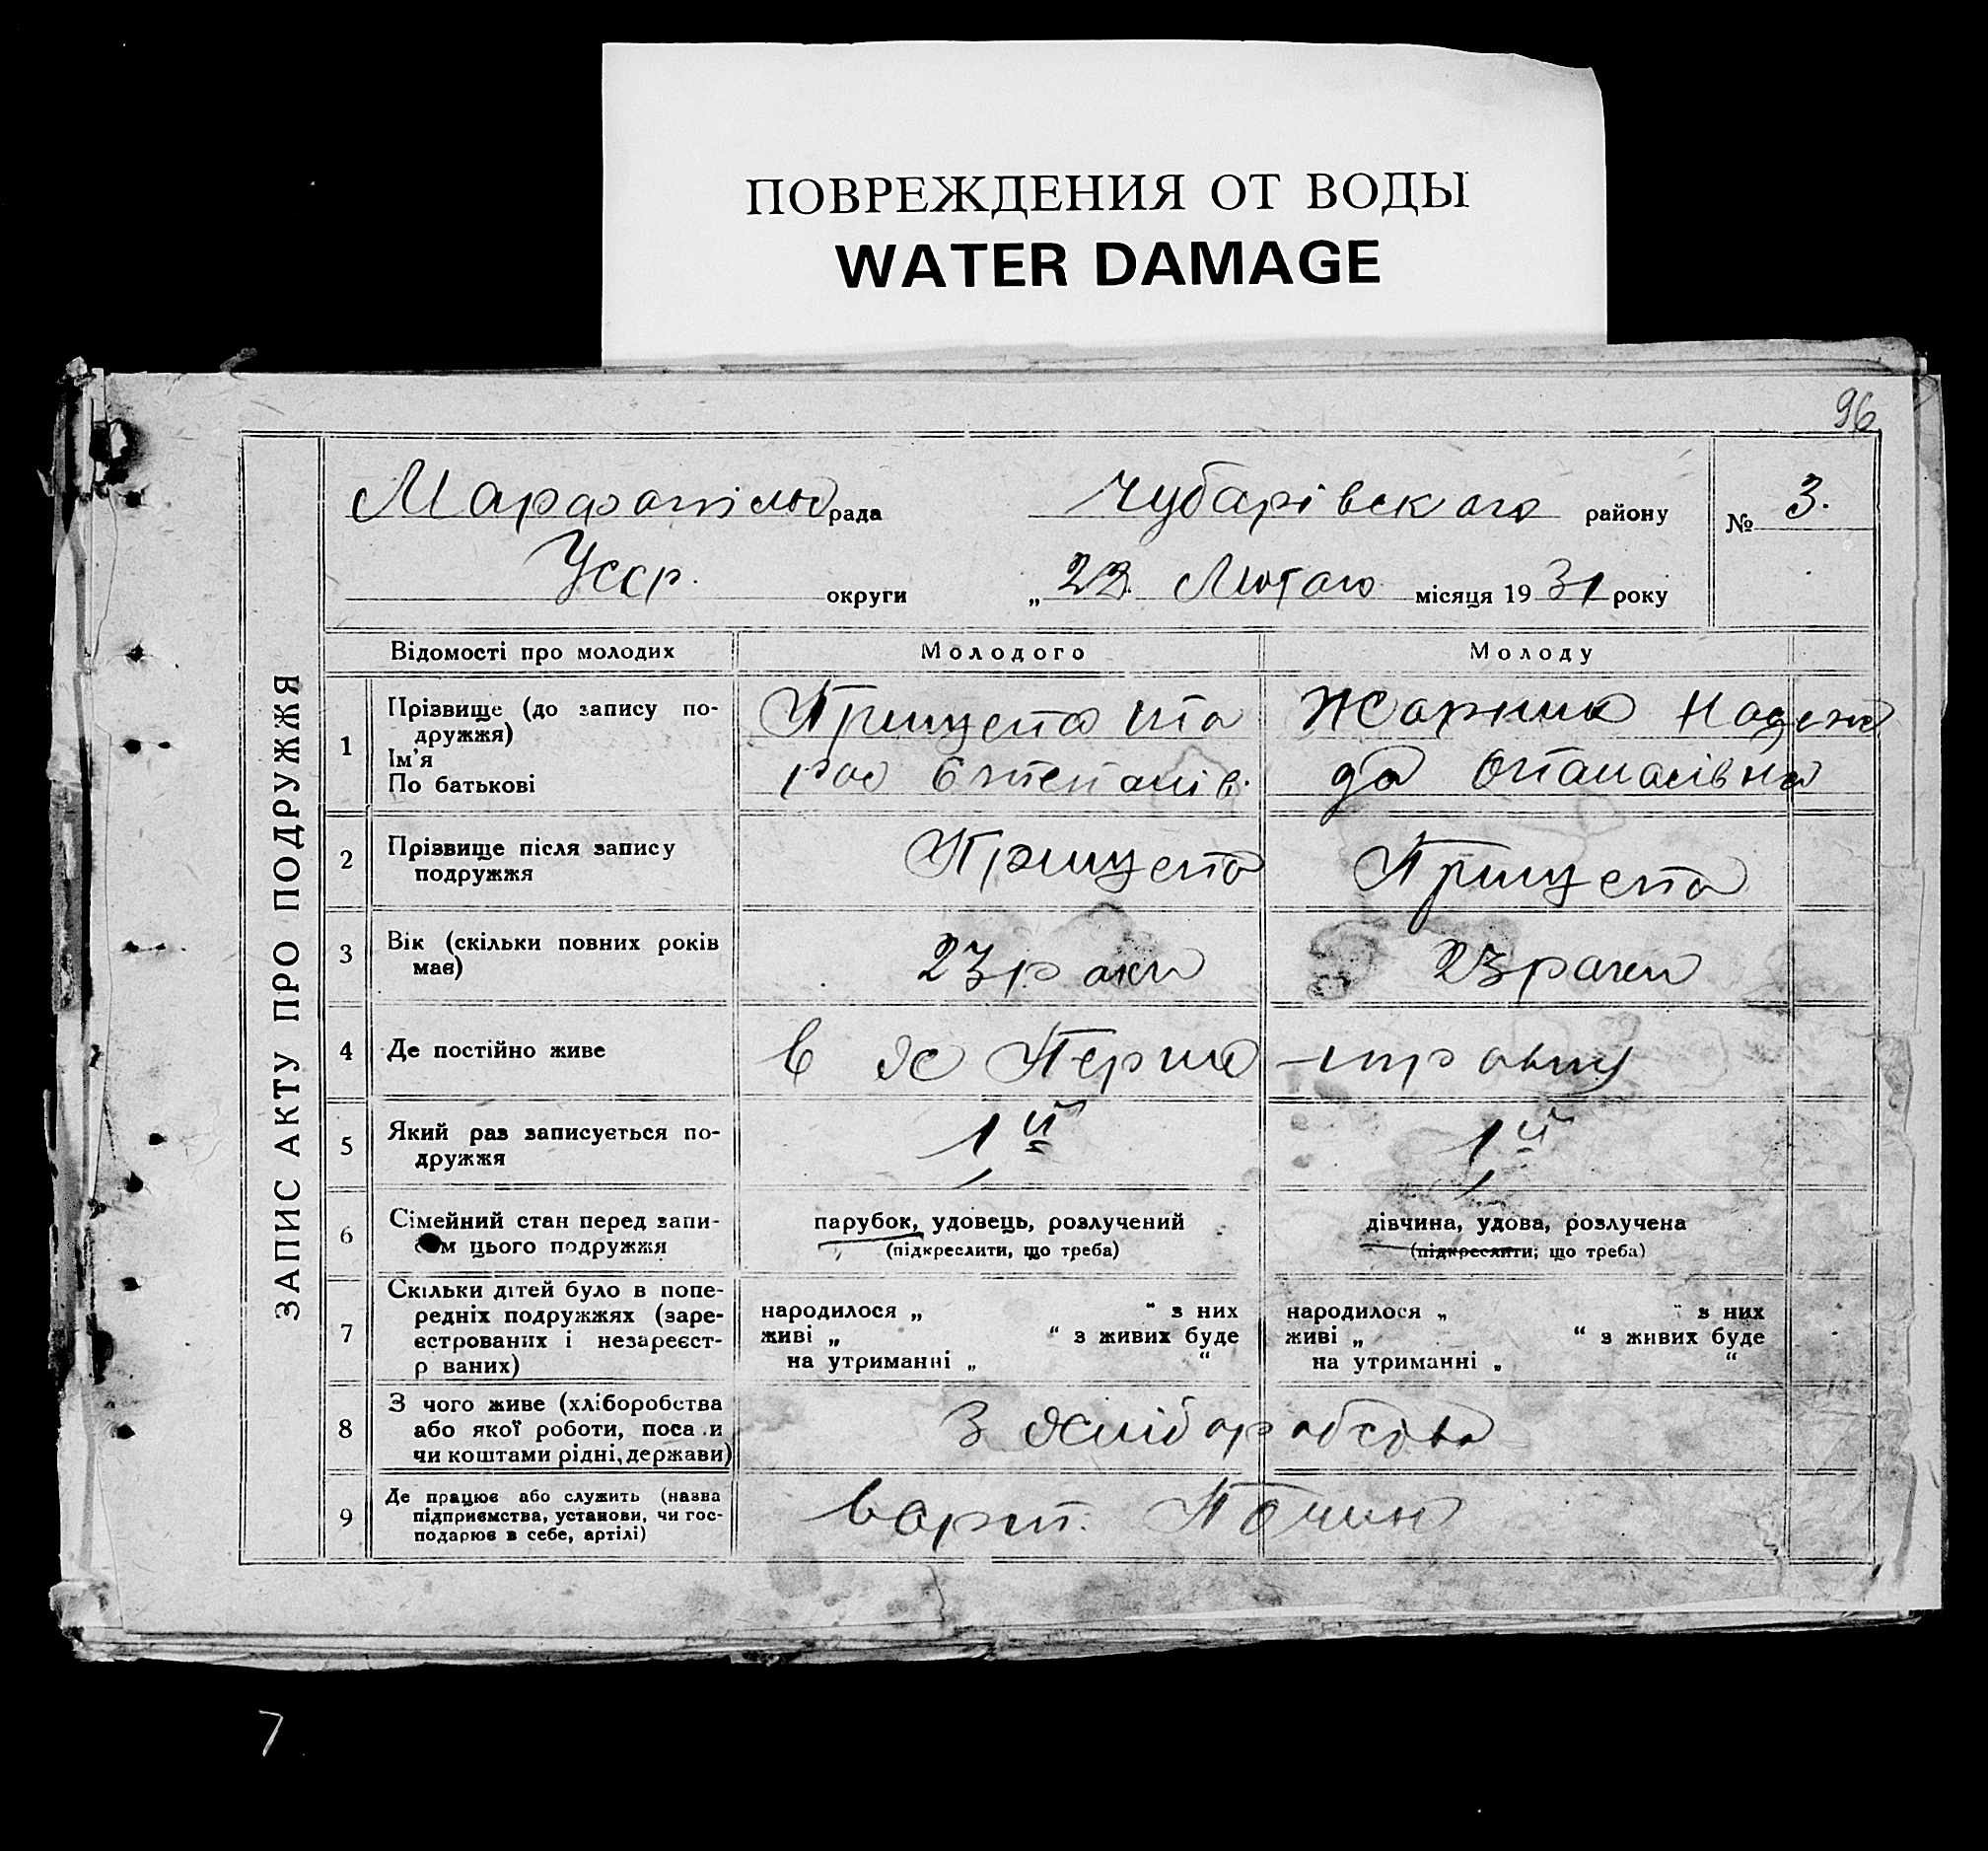 ПОВРЕЖДЕНИЯ ОТ ВОДЫ
WATER DAMAGE
96
ЗАПИС АКТУ ПРО ПОДРУЖЖЯ
рада Чубарівського району № 3.
Усср. округи „ 22. Лютого місяця 1931 року
Відомості про молодих Молодого Молоду
1 Прізвище (до запису по-
дружжя)
Ім'я
По батькові
Прищепа Та
рас Степанів.
Надеж
да Опанасівна
2 Прізвище після запису
подружжя
Прищепа Прищепа
3 Вік (скільки повних років
має)
23 роки 23 роки
4 Де постійно живе в х Перше-травня
5 Який раз записується по-
дружжя
1й 1й
6 Сімейний стан перед запи-
сом цього подружжя
парубок, удовець, розлучений
(підкреслити, що треба)
дівчина, удова, розлучена
(підкреслити, що треба)
7 Скільки дітей було в попе-
редніх подружжях (заре-
єстрованих і незареєст-
р ваних)
народилося „ “ з них
живі „ “ з живих буде
на утриманні „ “
народилося „ “ з них
живі „ “ з живих буде
на утриманні „ “
8 З чого живе (хліборобства
або якої роботи, поса и
чи коштами рідні, держави)
З хліборобства
9 Де працює або служить (назва
підприємства, установи, чи гос-
подарює в себе, артілі)
в арт. Почин
7